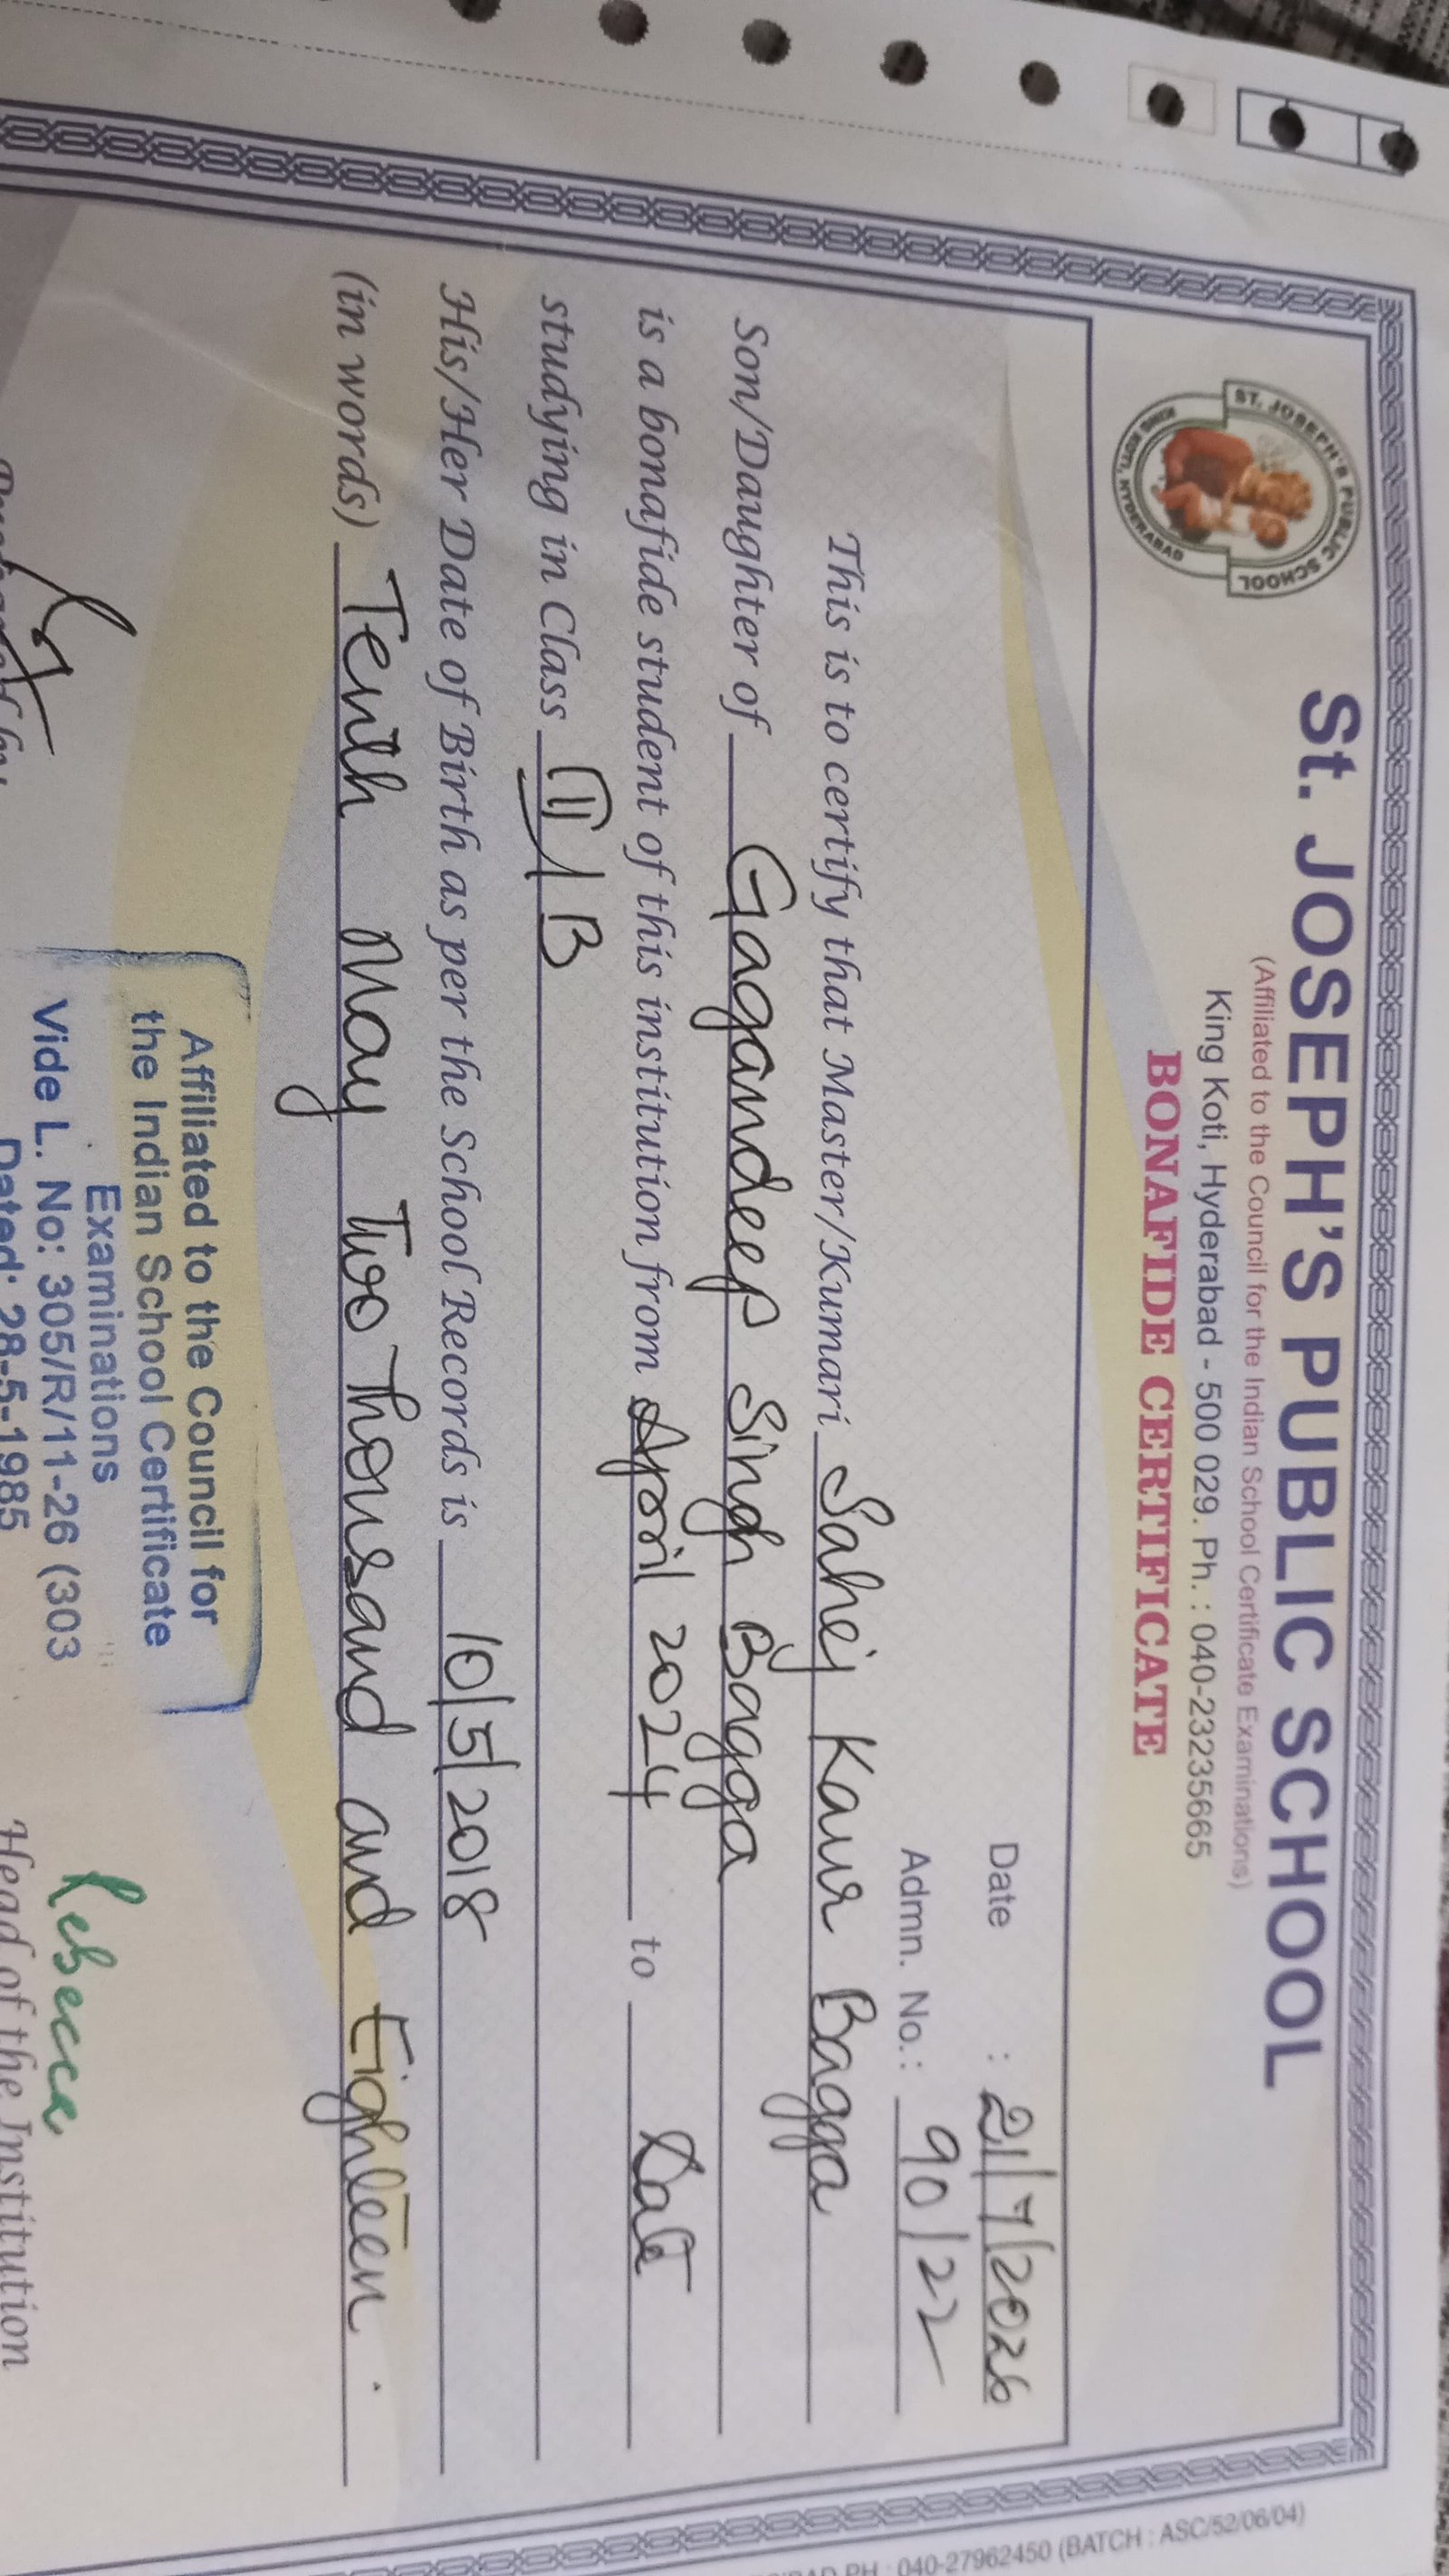 St. JOSEPH'S PUBLIC SCHOOL
(Affiliated to the Council for the Indian School Certificate Examinations)
King Koti, Hyderabad - 500 029. Ph. : 040-23235665
BONAFIDE CERTIFICATE
ST. JOSEPH'S PUBLIC SCHOOL
KING KOTI, HYDERABAD
Date : 21/7/2026
Admn. No.: 90/22
This is to certify that Master/Kumari Sahej Kaur Bagga
Son/Daughter of Gagandeep Singh Bagga
is a bonafide student of this institution from April 2024 to Date
studying in Class III/B
His/Her Date of Birth as per the School Records is 10/5/2018
(in words) Tenth May Two Thousand and Eighteen.
Affiliated to the Council for
the Indian School Certificate
Examinations
Vide L. No: 305/R/11-26 (303
Dated: 28-5-1985
Rebecca
Head of the Institution
PH : 040-27962450 (BATCH : ASC/52/06/04)